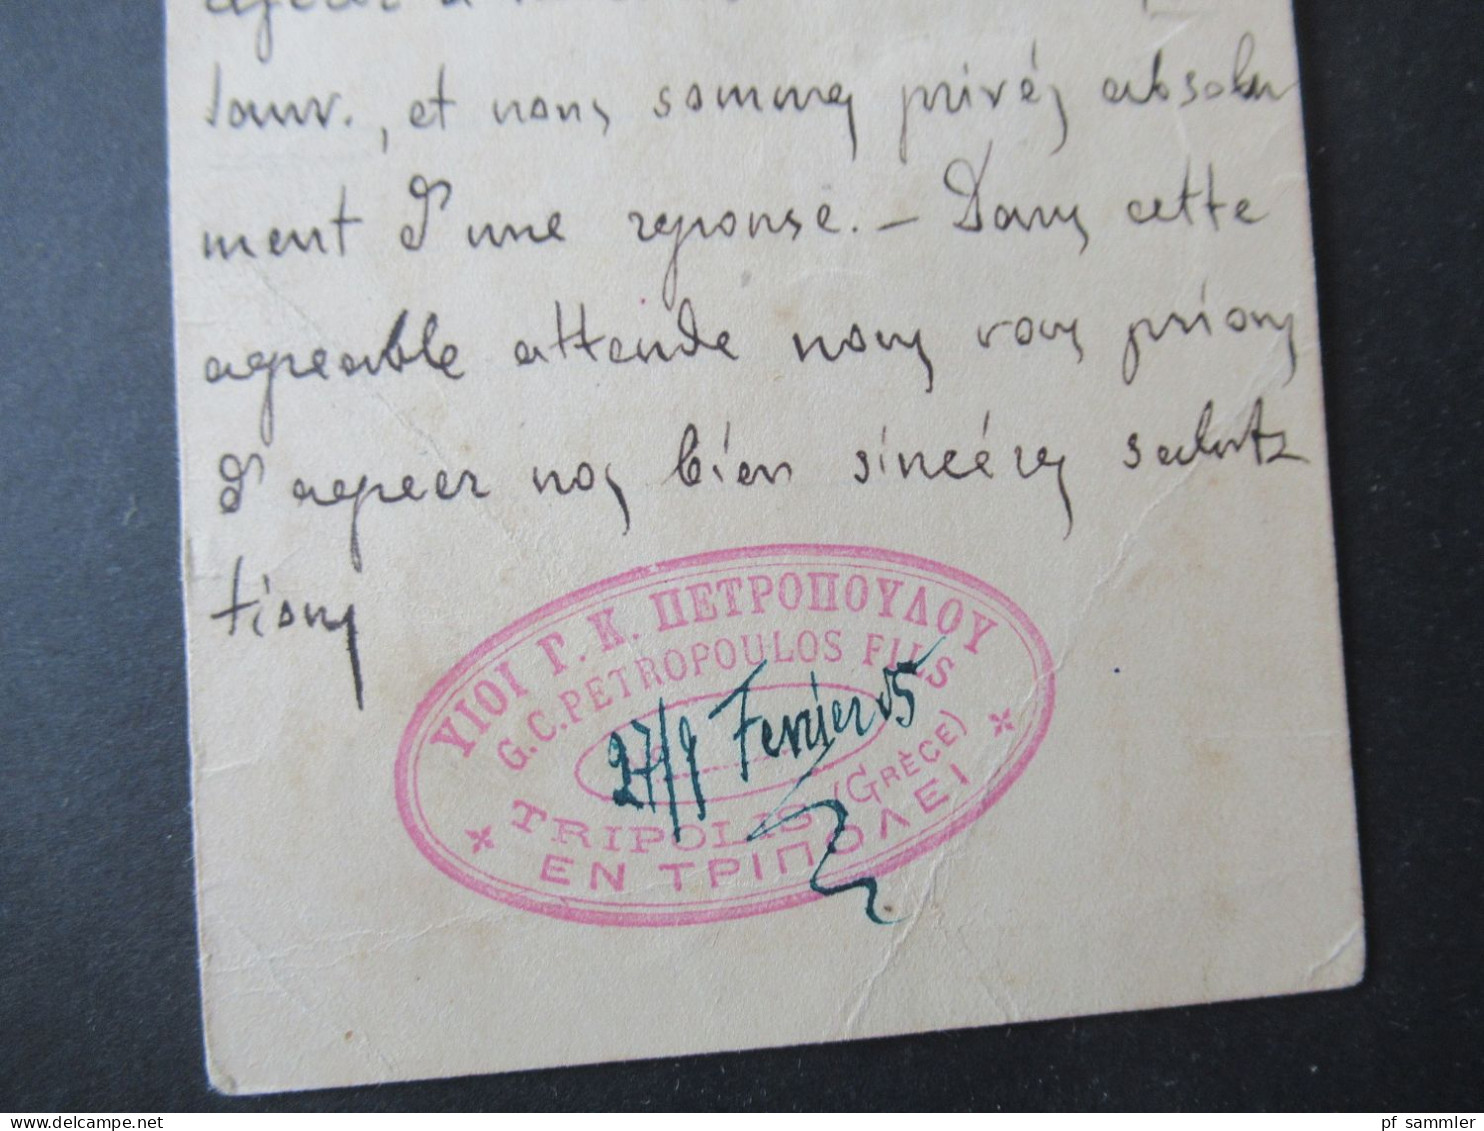 Janv., et nous sommes privés absolu
ment d'une reponse. — Dans cette
agreable attende nous vous prions
d'agreer nos bien sincéres saluta
tions
ΥΙΟΙ Γ. Κ. ΠΕΤΡΟΠΟΥΛΟΥ
G.C. PETROPOULOS FILS
27/9 Fevrier 05
TRIPOLIS (GRÈCE)
ΕΝ ΤΡΙΠΟΛΕΙ
pf_sammler_delcampe.net